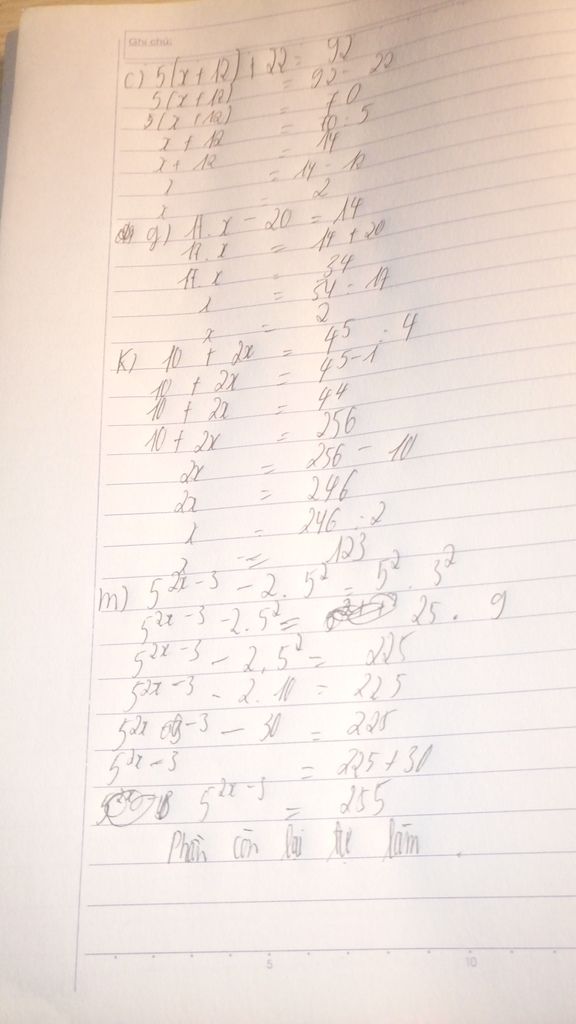 Ghi chú:
c) 5(x+12) + 22 = 92
5(x+12) = 92 - 22
5(x+12) = 70
x + 12 = 70 : 5
x + 12 = 14
x = 14 - 12
x = 2
g) 17. x - 20 = 14
17. x = 14 + 20
17. x = 34
x = 34 : 17
x = 2
K) 10 + 2x = 45 : 4
10 + 2x = 45-1
10 + 2x = 44
10 + 2x = 256
2x = 256 - 10
2x = 246
x = 246 : 2
x = 123
m) 5^2x-3 - 2. 5² = 5² . 3²
5^2x-3 - 2.5² = 25 . 9
5^2x-3 - 2.5² = 225
5^2x-3 - 2.10 = 225
5^2x-3 - 30 = 225
5^2x-3 = 225+30
5^2x-3 = 255
Phần còn lại tự làm.
5 10